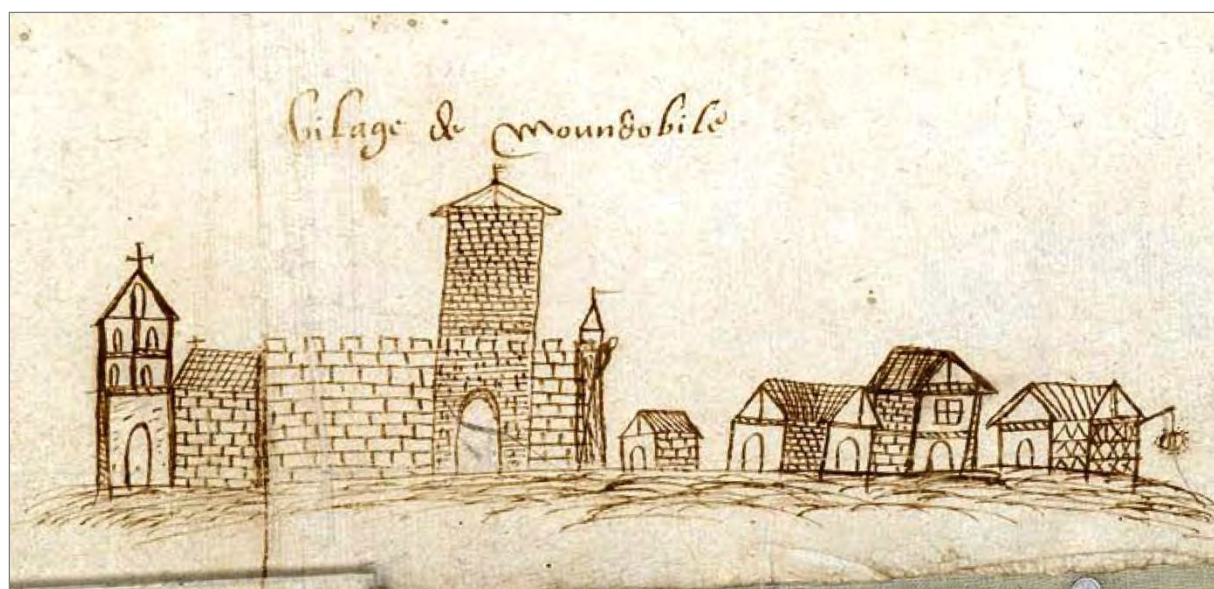 vilage de moundobile